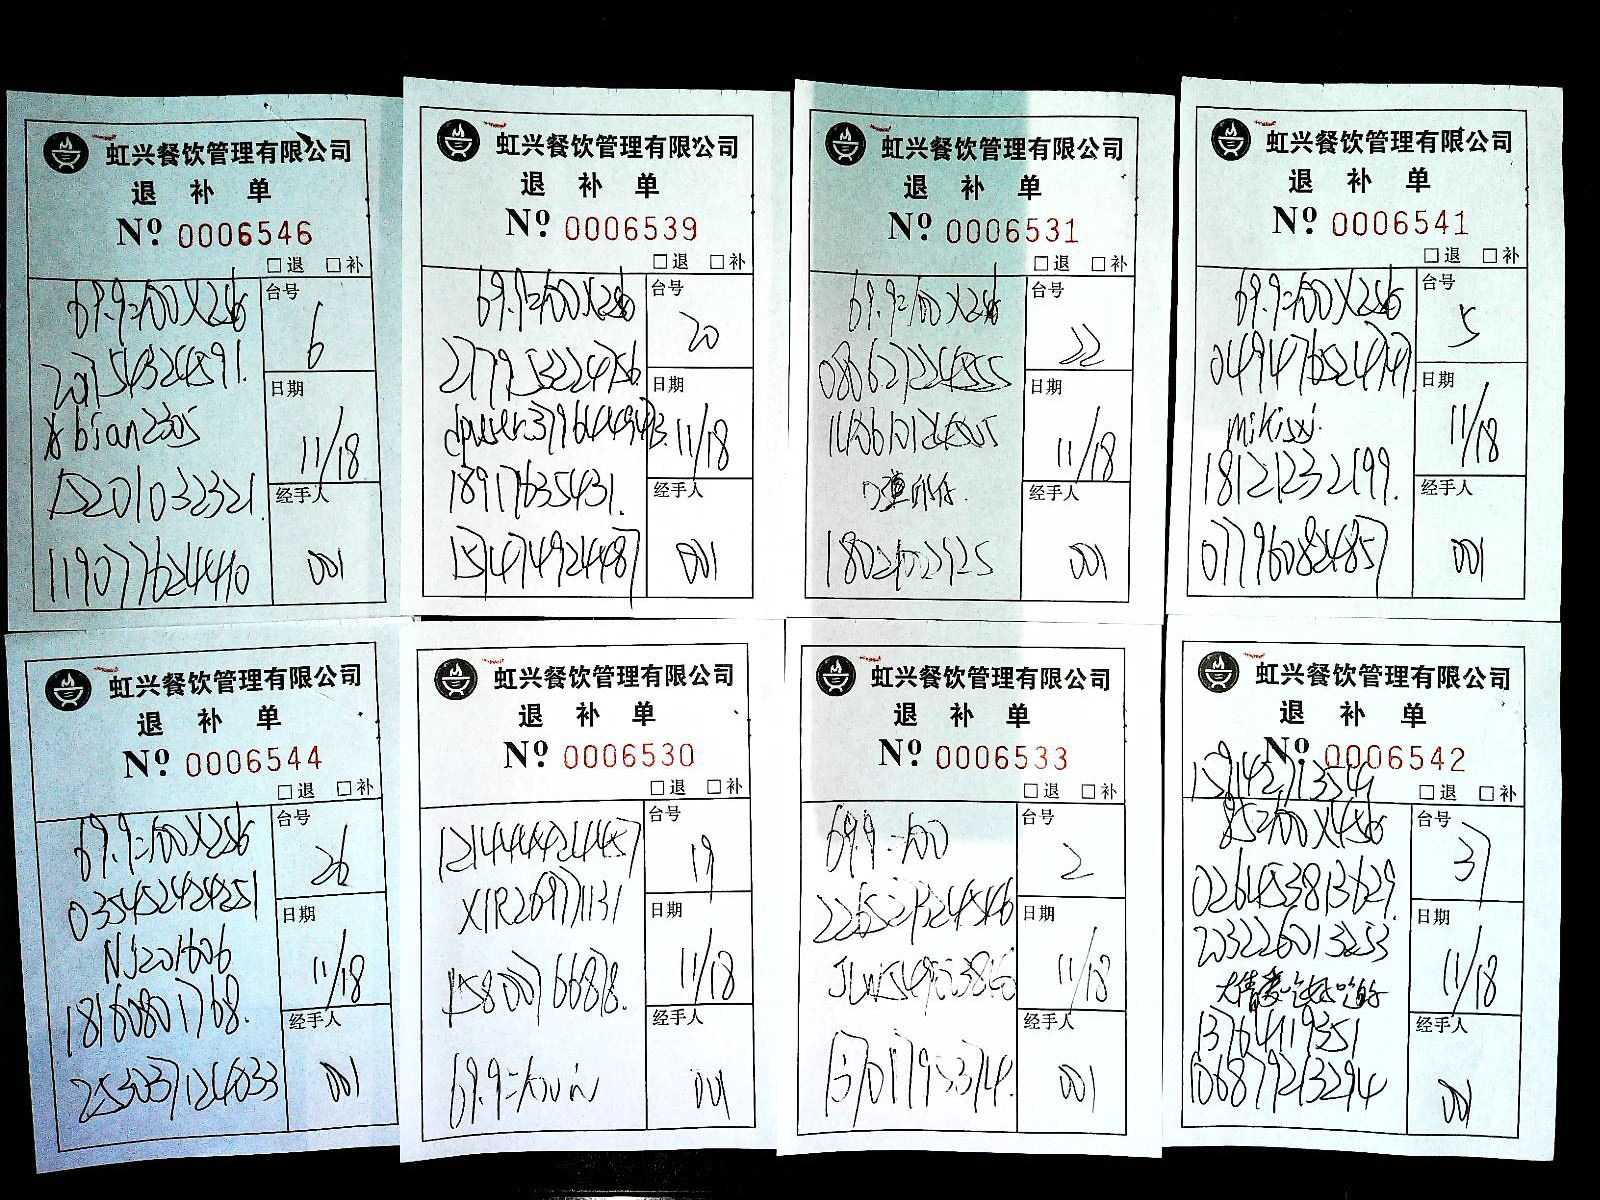 虹兴餐饮管理有限公司
退 补 单
Nº 0006546
□退 □补
69.9=100X2份
台号
6
日期
11/18
xbian2305
15201032321.
经手人
119077624440
001
虹兴餐饮管理有限公司
退 补 单
Nº 0006539
□退 □补
台号
20
277953224756.
日期
11/18
18917635431.
经手人
151474924487
001
虹兴餐饮管理有限公司
退 补 单
Nº 0006531
□退 □补
台号
22
080627224555
日期
11/18
经手人
001
虹兴餐饮管理有限公司
退 补 单
Nº 0006541
□退 □补
69.9=100X2份
台号
5
049476524747
日期
11/18
18121232199.
经手人
077960824857
001
虹兴餐饮管理有限公司
退 补 单
Nº 0006544
□退 □补
69.9=100X2份
台号
26
035452424251
日期
11/18
NJ201606
18160801768.
经手人
253037124033
001
虹兴餐饮管理有限公司
退 补 单
Nº 0006530
□退 □补
台号
19
121444424457
X1R26971131
日期
11/18
15800766878.
经手人
001
虹兴餐饮管理有限公司
退 补 单
Nº 0006533
□退 □补
69.9=100
台号
2
226529324546
日期
11/18
经手人
13701795374.
001
虹兴餐饮管理有限公司
退 补 单
Nº 0006542
□退 □补
85=100X4份
台号
37
026453813629.
203226013253
日期
11/18
13764119351
经手人
106879213294
001